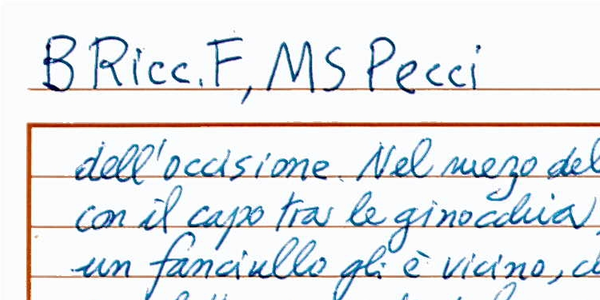 B Ricc. F, MS Pecci
dell'occisione. Nel mezo del
con il capo tra le ginocchia,
un fanciullo gli è vicino,